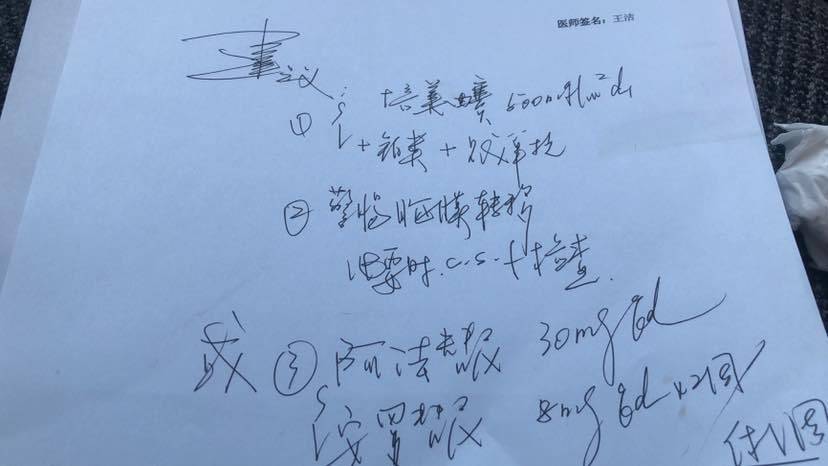 医师签名：王洁
建议：
① 培美曲赛 500mg/m² d1
+铂类+贝伐单抗
② 警惕脑膜转移
必要时 c.s.f 检查.
或 ③ 阿法替尼 30mg qd
安罗替尼 8mg qd x2周
休1周